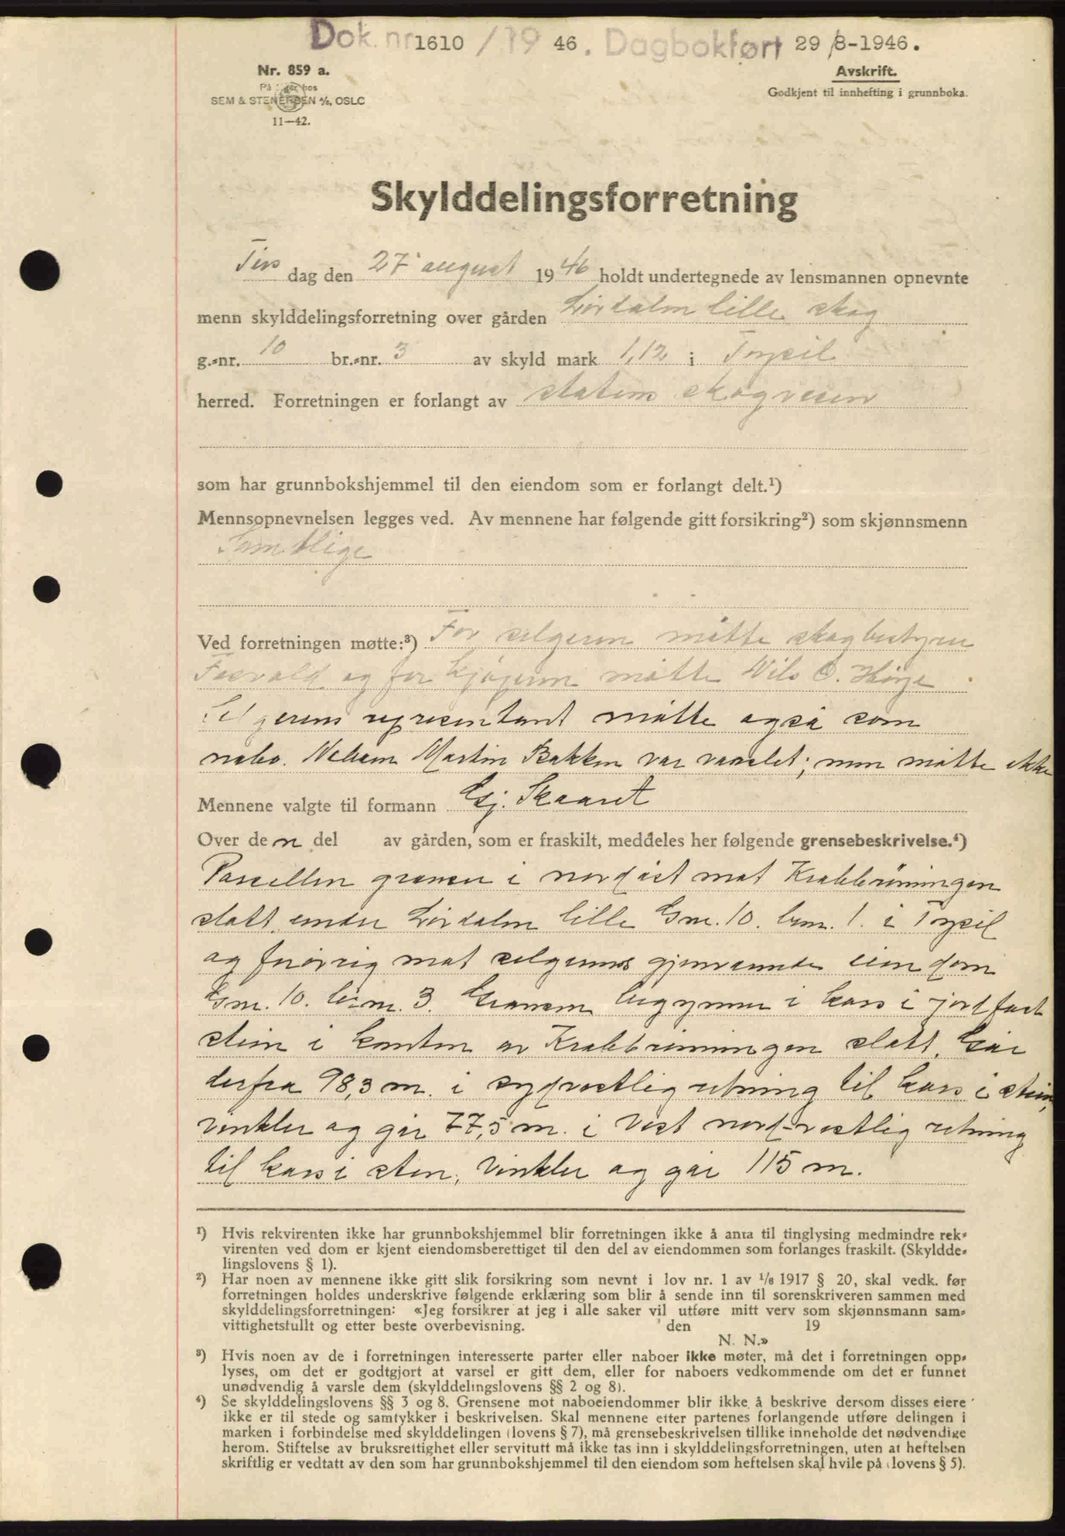 Dok. nr 1610 / 19 46. Dagbokført 29/8-1946.
Nr. 859 a.
På lager hos
SEM & STENERSEN A/S, OSLO
11—42.
Avskrift.
Godkjent til innhefting i grunnboka.
Skylddelingsforretning
Tirs dag den 27 august 19 46 holdt undertegnede av lensmannen opnevnte
menn skylddelingsforretning over gården Lördalen lille skog
g.-nr. 10 br.-nr. 3 av skyld mark 1,12 i Trysil
herred. Forretningen er forlangt av statens skogvesen
som har grunnbokshjemmel til den eiendom som er forlangt delt.¹)
Mennsopnevnelsen legges ved. Av mennene har følgende gitt forsikring²) som skjønnsmenn
Samtlige
Ved forretningen møtte:³) For selgeren møtte skogbestyrer
og for kjøperen møtte Nils O.
Selgerens representant møtte også som
nabo. Martin Bakken var varslet; men møtte ikke
Mennene valgte til formann Gj. Skaaret
Over de n del av gården, som er fraskilt, meddeles her følgende grensebeskrivelse.⁴)
Parsellen grenser i nordöst mot Krabbrönningen
slått under Lördalen lille Gnr. 10. brnr. 1. i Trysil
og forövrig mot selgerens gjenværende eiendom
Gnr. 10. brnr. 3. Grensen begynner i kors i jordfast
stein i kanten av Krabbrönningen slått. Går
derfra 98,3 m. i sydvestlig retning til kors i stein,
vinkler og går 77,5 m. i Vest nord-vestlig retning
til kors i sten, vinkler og går 115 m.
¹) Hvis rekvirenten ikke har grunnbokshjemmel blir forretningen ikke å anta til tinglysing medmindre rek-
virenten ved dom er kjent eiendomsberettiget til den del av eiendommen som forlanges fraskilt. (Skyldde-
lingslovens § 1).
²) Har noen av mennene ikke gitt slik forsikring som nevnt i lov nr. 1 av 1/6 1917 § 20, skal vedk. før
forretningen holdes underskrive følgende erklæring som blir å sende inn til sorenskriveren sammen med
skylddelingsforretningen: «Jeg forsikrer at jeg i alle saker vil utføre mitt verv som skjønnsmann sam-
vittighetsfullt og etter beste overbevisning. den 19
N. N.»
³) Hvis noen av de i forretningen interesserte parter eller naboer ikke møter, må det i forretningen opp-
lyses, om det er godtgjort at varsel er gitt dem, eller for naboers vedkommende om det er funnet
unødvendig å varsle dem (skylddelingslovens §§ 2 og 8).
⁴) Se skylddelingslovens §§ 3 og 8. Grensene mot naboeiendommer blir ikke å beskrive dersom disses eiere
ikke er til stede og samtykker i beskrivelsen. Skal mennene etter partenes forlangende utføre delingen i
marken i forbindelse med skylddelingen (lovens § 7), må grensebeskrivelsen tillike inneholde det nødvendige
herom. Stiftelse av bruksrettighet eller servitutt må ikke tas inn i skylddelingsforretningen, uten at heftelsen
skriftlig er vedtatt av den som har grunnbokshjemmel til den eiendom som heftelsen skal hvile på (lovens § 5).